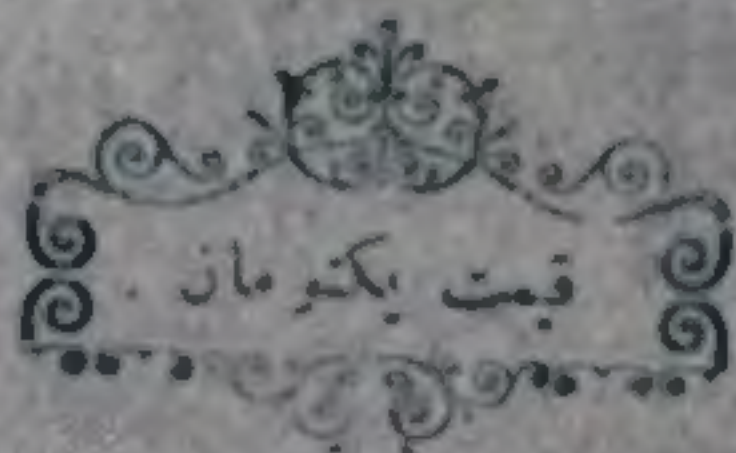 قیمت یکتومان